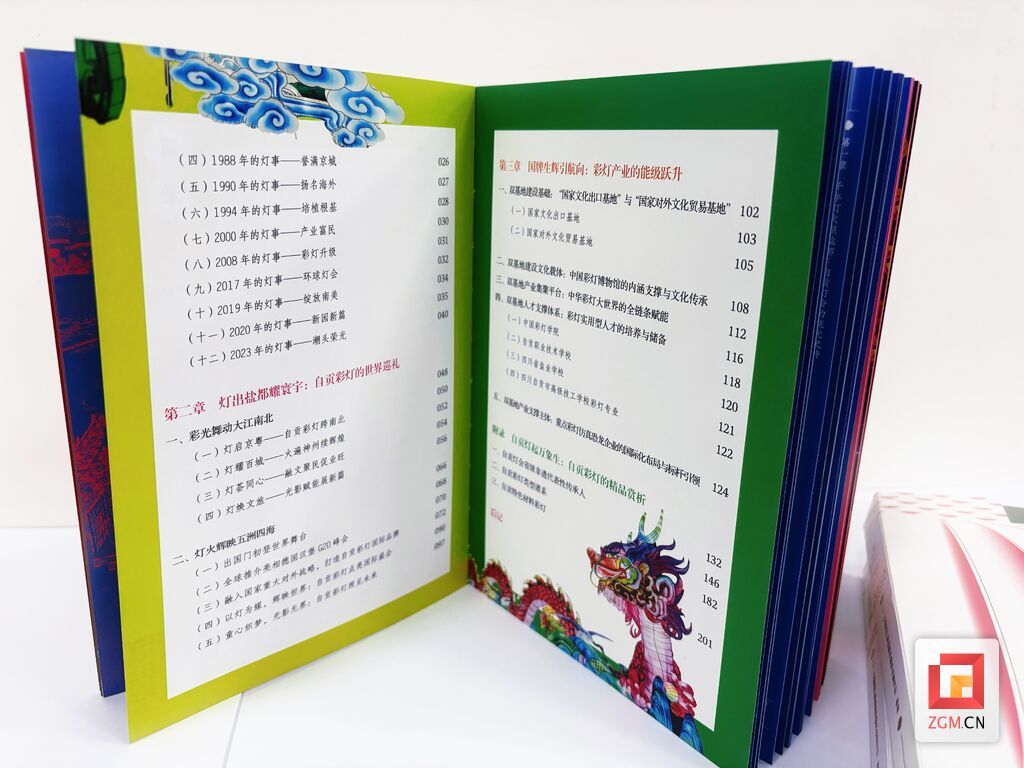 （四）1988 年的灯事——誉满京城 026
（五）1990 年的灯事——扬名海外 027
（六）1994 年的灯事——培植根基 028
（七）2000 年的灯事——产业富民 030
（八）2008 年的灯事——彩灯升级 031
（九）2017 年的灯事——环球灯会 032
（十）2019 年的灯事——绽放南美 034
（十一）2020 年的灯事——新园新篇 035
（十二）2023 年的灯事——潮头荣光 040
第二章 灯出盐都耀寰宇：自贡彩灯的世界巡礼 048
一、彩光舞动大江南北 050
（一）灯启京粤——自贡彩灯跨南北 052
（二）灯耀百城——火遍神州续辉煌 054
（三）灯荟同心——融文聚民促业旺 056
（四）灯焕文旅——光影赋能展新篇 066
二、灯火辉映五洲四海 068
（一）出国门初登世界舞台 070
（二）全球推介亮相德国汉堡 G20 峰会 072
（三）融入国家重大对外战略，打造自贡彩灯国际品牌 090
（四）以灯为媒，辉映世界：自贡彩灯点亮国际盛会 097
（五）童心织梦，光影无界：自贡彩灯预见未来
第三章 国牌生辉引航向：彩灯产业的能级跃升
一、双基地建设基础：“国家文化出口基地”与“国家对外文化贸易基地” 102
（一）国家文化出口基地 103
（二）国家对外文化贸易基地 105
二、双基地建设文化载体：中国彩灯博物馆的内涵支撑与文化传承 108
三、双基地产业集聚平台：中华彩灯大世界的全链条赋能 112
四、双基地人才支撑体系：彩灯实用型人才的培养与储备 116
（一）中国彩灯学院 118
（二）自贡职业技术学校 120
（三）四川省盐业学校 121
（四）四川自贡市高级技工学校彩灯专业 122
五、双基地产业支撑主体：重点彩灯仿真恐龙企业的国际化布局与标杆引领 124
附录 自贡灯起万象生：自贡彩灯的精品赏析
一、自贡灯会省级非遗代表性传承人 132
二、自贡彩灯类型谱系 146
三、自贡特色材料彩灯 182
后记 201
ZGM.CN